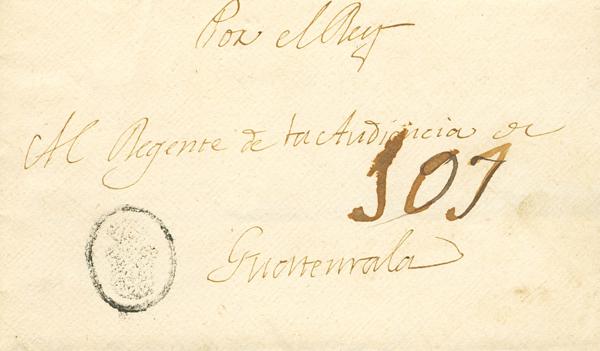 Por el Rey
Al Regente de la Audiencia de
107
Guatemala